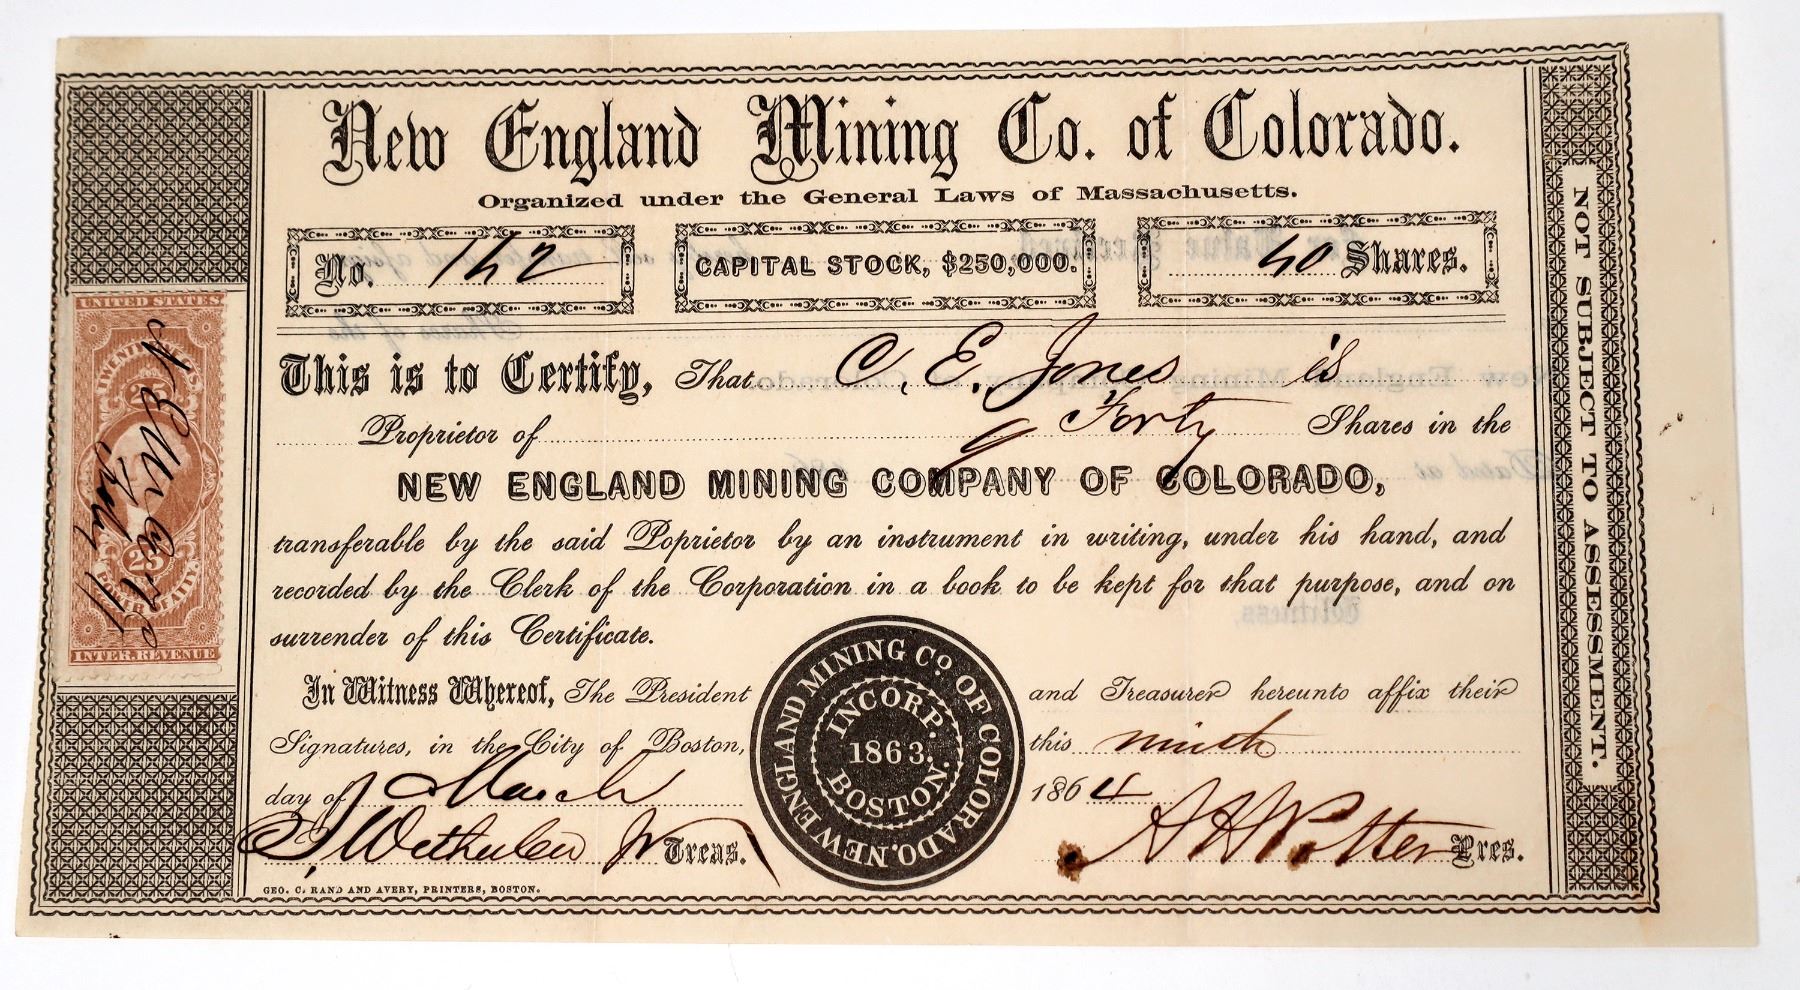 New England Mining Co. of Colorado.
Organized under the General Laws of Massachusetts.
No. 142
CAPITAL STOCK, $250,000.
40 Shares.
This is to Certify, That C. E. Jones is
Proprietor of Forty Shares in the
NEW ENGLAND MINING COMPANY OF COLORADO,
transferable by the said Poprietor by an instrument in writing, under his hand, and
recorded by the Clerk of the Corporation in a book to be kept for that purpose, and on
surrender of this Certificate.
In Witness Whereof, The President and Treasurer hereunto affix their
Signatures, in the City of Boston, this ninth
day of March 1864
Treas.
A H Potter Pres.
GEO. C. RAND AND AVERY, PRINTERS, BOSTON.
NEW ENGLAND MINING CO. OF COLORADO.
INCORP.
1863.
BOSTON.
NOT SUBJECT TO ASSESSMENT.
UNITED STATES
25
25
INTER. REVENUE